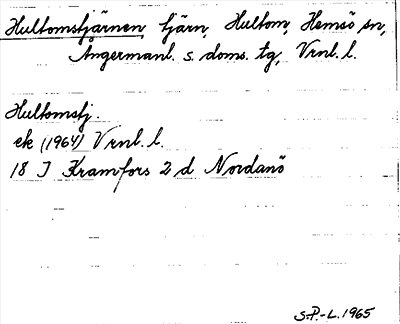 Hultomstjärnen, tjärn, Hultom, Hemsö sn,
Ångermanl. s. doms. tg, Vrnl. l.
Hultomstj.
ek (1964) Vrnl. l.
18 J Kramfors 2 d Nordanö
S.P.-L. 1965